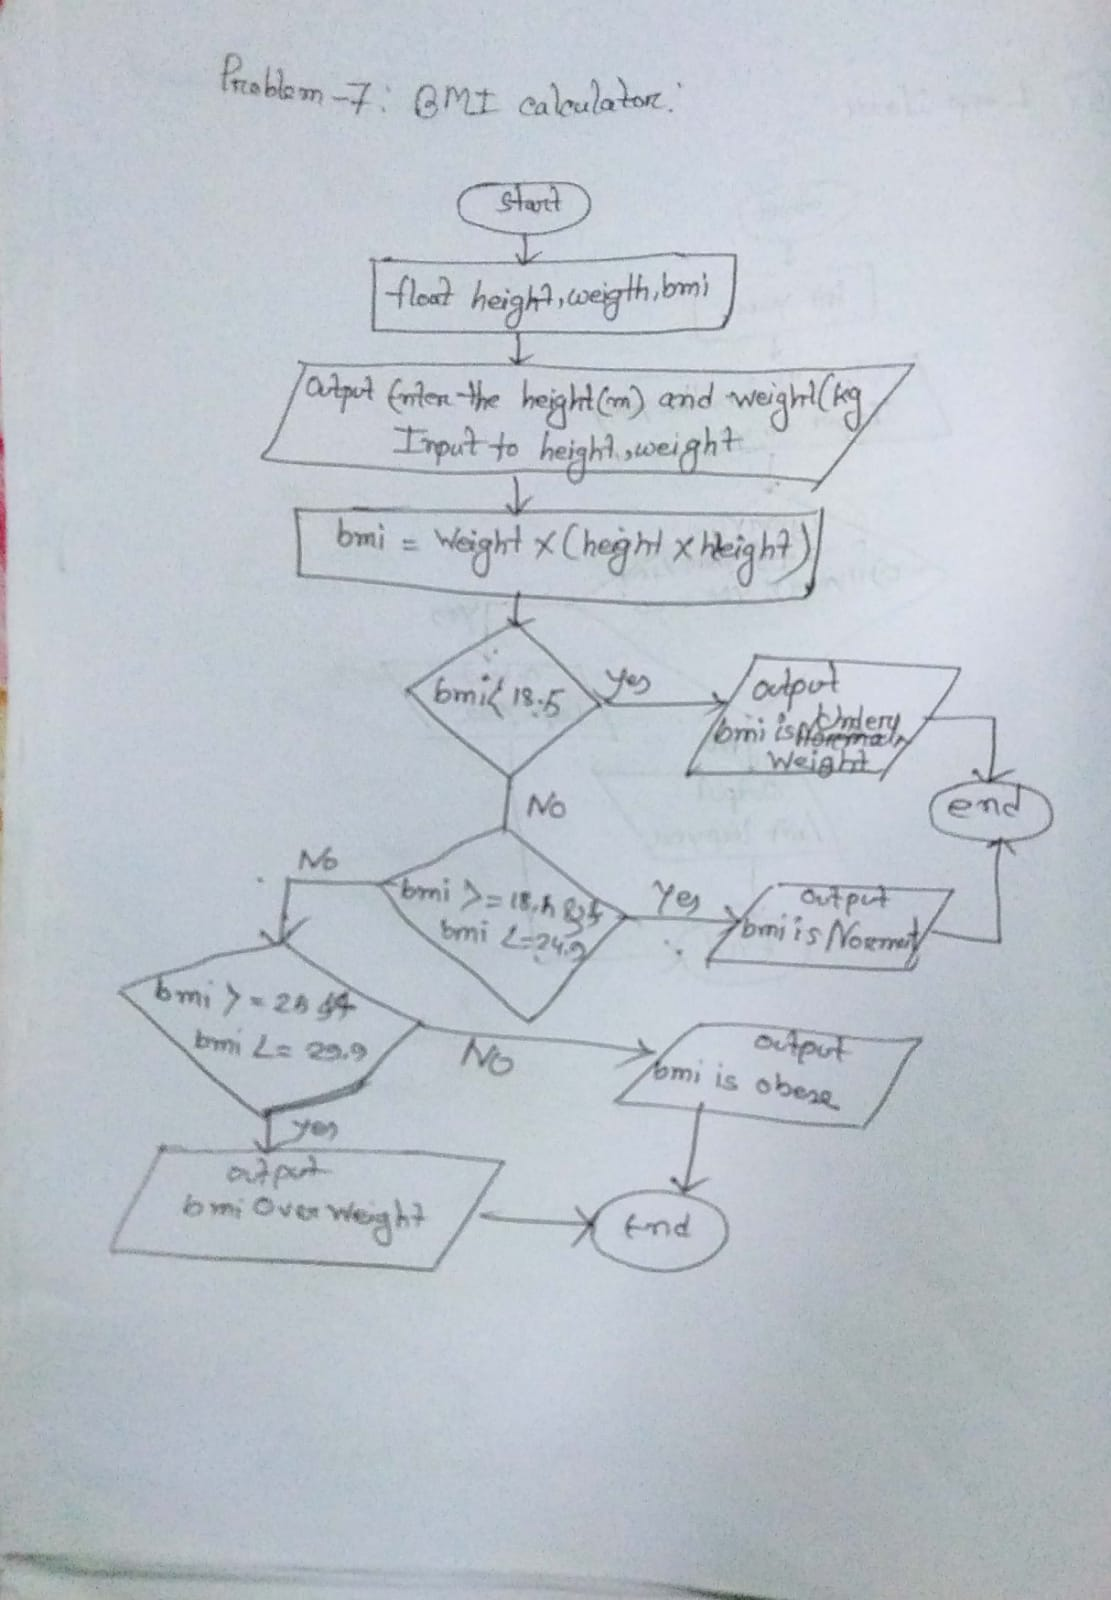 Problem-7: BMI calculator:
Start
float height, weigth, bmi
Output Enter the height(m) and weight(kg
Input to height, weight
bmi = Weight × (height × height)
bmi < 18.5
yes
output
bmi is Under
Weight
end
No
bmi >= 18.5 &&
bmi <= 24.9
Yes
output
bmi is Normal
No
bmi >= 25 &&
bmi <= 29.9
No
output
bmi is obese
yes
output
bmi Over Weight
End